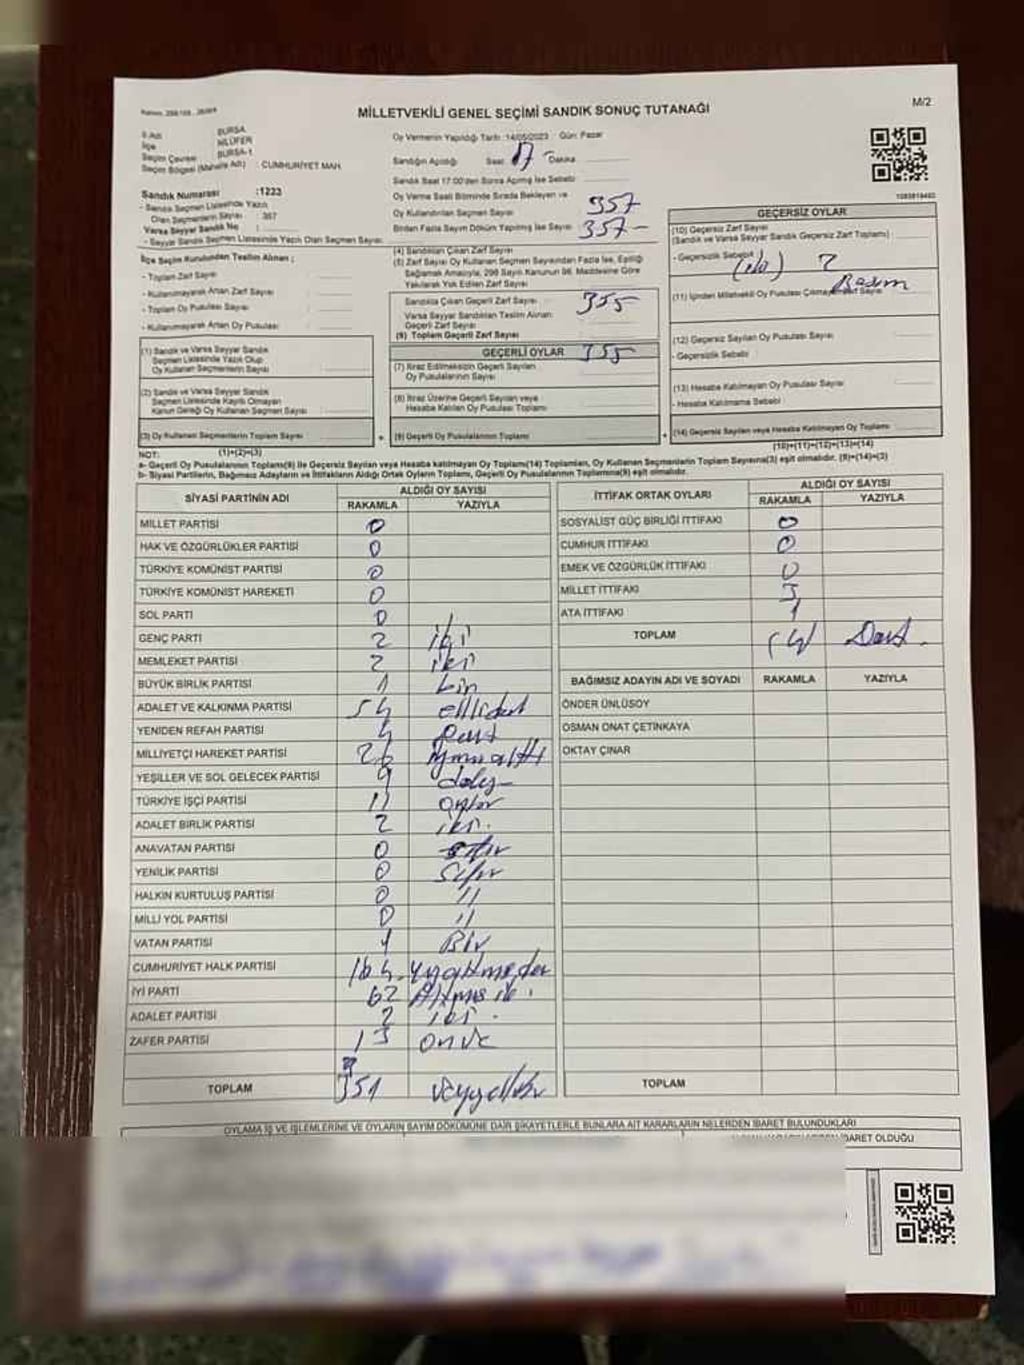 MİLLETVEKİLİ GENEL SEÇİMİ SANDIK SONUÇ TUTANAĞI
M/2
İl Adı BURSA
İlçe NİLÜFER
Seçim Çevresi BURSA-1
Seçim Bölgesi (Mahalle Adı) : CUMHURİYET MAH.
Sandık Numarası :1223
- Sandık Seçmen Listesinde Yazılı
Olan Seçmenlerin Sayısı : 367
Varsa Seyyar Sandık No :
- Seyyar Sandık Seçmen Listesinde Yazılı Olan Seçmen Sayısı:
Oy Vermenin Yapıldığı Tarih :14/05/2023 Gün: Pazar
Sandığın Açıldığı Saat 17 Dakika
Sandık Saat 17:00'den Sonra Açılmış İse Sebebi
Oy Verme Saati Bitiminde Sırada Bekleyen ve
Oy Kullandırılan Seçmen Sayısı 357
Birden Fazla Sayım Döküm Yapılmış İse Sayısı 357-
İlçe Seçim Kurulundan Teslim Alınan ;
- Toplam Zarf Sayısı :
- Kullanılmayarak Artan Zarf Sayısı :
- Toplam Oy Pusulası Sayısı :
- Kullanılmayarak Artan Oy Pusulası :
(1) Sandık ve Varsa Seyyar Sandık
Seçmen Listesinde Yazılı Olup
Oy Kullanan Seçmenlerin Sayısı
(2) Sandık ve Varsa Seyyar Sandık
Seçmen Listesinde Kayıtlı Olmayan
Kanun Gereği Oy Kullanan Seçmen Sayısı
(3) Oy Kullanan Seçmenlerin Toplam Sayısı
(1)+(2)=(3)
(4) Sandıktan Çıkan Zarf Sayısı
(5) Zarf Sayısı Oy Kullanan Seçmen Sayısından Fazla İse, Eşitliği
Sağlamak Amacıyla, 298 Sayılı Kanunun 98. Maddesine Göre
Yakılarak Yok Edilen Zarf Sayısı
Sandıkta Çıkan Geçerli Zarf Sayısı 355
Varsa Seyyar Sandıktan Teslim Alınan
Geçerli Zarf Sayısı
(6) Toplam Geçerli Zarf Sayısı
GEÇERLİ OYLAR 355
(7) İtiraz Edilmeksizin Geçerli Sayılan
Oy Pusulalarının Sayısı
(8) İtiraz Üzerine Geçerli Sayılan veya
Hesaba Katılan Oy Pusulası Toplamı
(9) Geçerli Oy Pusulalarının Toplamı
GEÇERSİZ OYLAR
(10) Geçersiz Zarf Sayısı
(Sandık ve Varsa Seyyar Sandık Geçersiz Zarf Toplamı)
- Geçersizlik Sebebi
(11) İçinden Milletvekili Oy Pusulası Çıkmayan Zarf Sayısı
(12) Geçersiz Sayılan Oy Pusulası Sayısı
- Geçersizlik Sebebi
(13) Hesaba Katılmayan Oy Pusulası Sayısı
- Hesaba Katılmama Sebebi
(14) Geçersiz Sayılan veya Hesaba Katılmayan Oy Toplamı
(10)+(11)+(12)+(13)=(14)
NOT:
a- Geçerli Oy Pusulalarının Toplamı(9) ile Geçersiz Sayılan veya Hesaba katılmayan Oy Toplamı(14) Toplamları, Oy Kullanan Seçmenlerin Toplam Sayısına(3) eşit olmalıdır. (9)+(14)=(3)
b- Siyasi Partilerin, Bağımsız Adayların ve İttifakların Aldığı Ortak Oyların Toplamı, Geçerli Oy Pusulalarının Toplamına(9) eşit olmalıdır.
SİYASİ PARTİNİN ADI ALDIĞI OY SAYISI
RAKAMLA YAZIYLA
MİLLET PARTİSİ 0
HAK VE ÖZGÜRLÜKLER PARTİSİ 0
TÜRKİYE KOMÜNİST PARTİSİ 0
TÜRKİYE KOMÜNİST HAREKETİ 0
SOL PARTİ 0
GENÇ PARTİ 2 iki
MEMLEKET PARTİSİ 2 iki
BÜYÜK BİRLİK PARTİSİ 1 bir
ADALET VE KALKINMA PARTİSİ 54 ellidört
YENİDEN REFAH PARTİSİ 4
MİLLİYETÇİ HAREKET PARTİSİ 26 yirmialtı
YEŞİLLER VE SOL GELECEK PARTİSİ 9
TÜRKİYE İŞÇİ PARTİSİ 11
ADALET BİRLİK PARTİSİ 2 iki.
ANAVATAN PARTİSİ 0 sıfır
YENİLİK PARTİSİ 0 Sıfır
HALKIN KURTULUŞ PARTİSİ 0 //
MİLLİ YOL PARTİSİ 0 //
VATAN PARTİSİ 1 Bir
CUMHURİYET HALK PARTİSİ 164
İYİ PARTİ 62
ADALET PARTİSİ 2 iki.
ZAFER PARTİSİ 13
TOPLAM 351
İTTİFAK ORTAK OYLARI ALDIĞI OY SAYISI
RAKAMLA YAZIYLA
SOSYALİST GÜÇ BİRLİĞİ İTTİFAKI 0
CUMHUR İTTİFAKI 0
EMEK VE ÖZGÜRLÜK İTTİFAKI 0
MİLLET İTTİFAKI 3
ATA İTTİFAKI 1
TOPLAM (4) Dört.
BAĞIMSIZ ADAYIN ADI VE SOYADI RAKAMLA YAZIYLA
ÖNDER ÜNLÜSOY
OSMAN ONAT ÇETİNKAYA
OKTAY ÇINAR
TOPLAM
OYLAMA İŞ VE İŞLEMLERİNE VE OYLARIN SAYIM DÖKÜMÜNE DAİR ŞİKAYETLERLE BUNLARA AİT KARARLARIN NELERDEN İBARET BULUNDUKLARI
İBARET OLDUĞU